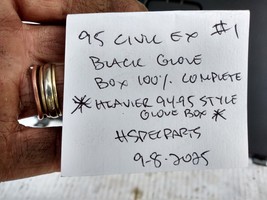 95 CIVIC EX #1
BLACK GLOVE
BOX 100% COMPLETE
* HEAVIER 94-95 STYLE
GLOVE BOX *
HSPECPARTS
9-8-2025